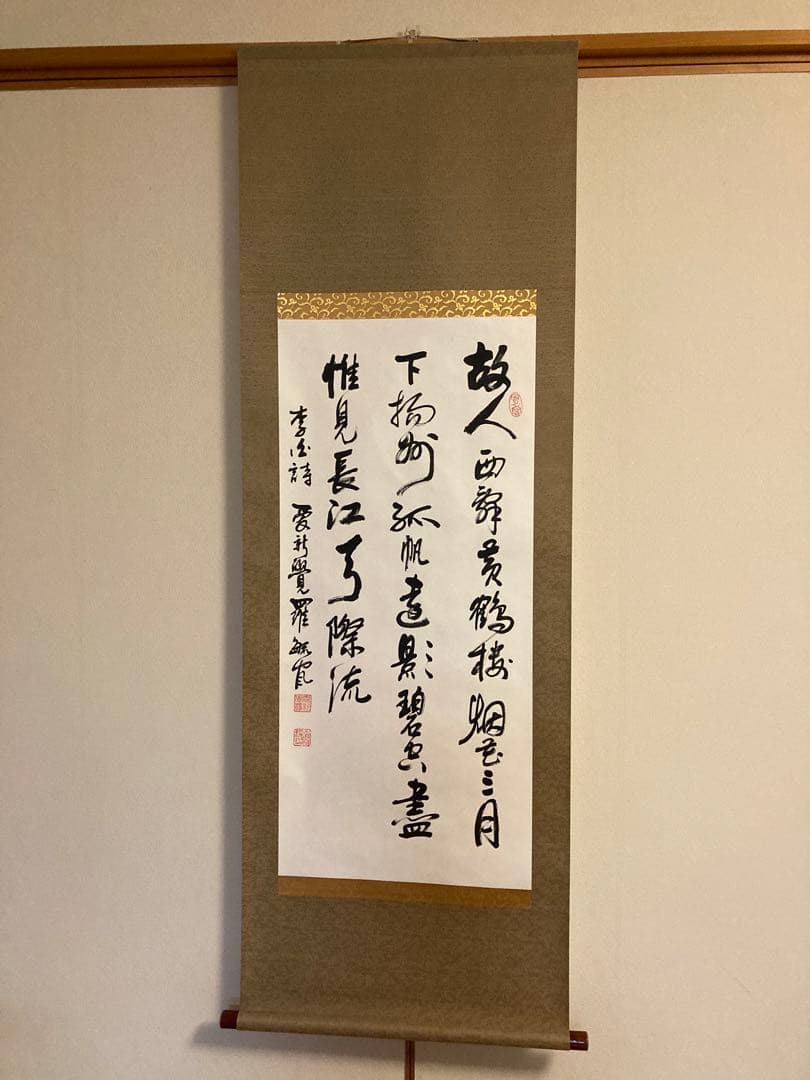 故人西辞黄鹤楼烟花三月
下揚州孤帆遠影碧空盡
惟見長江天際流
李白詩 愛新覺羅毓峘